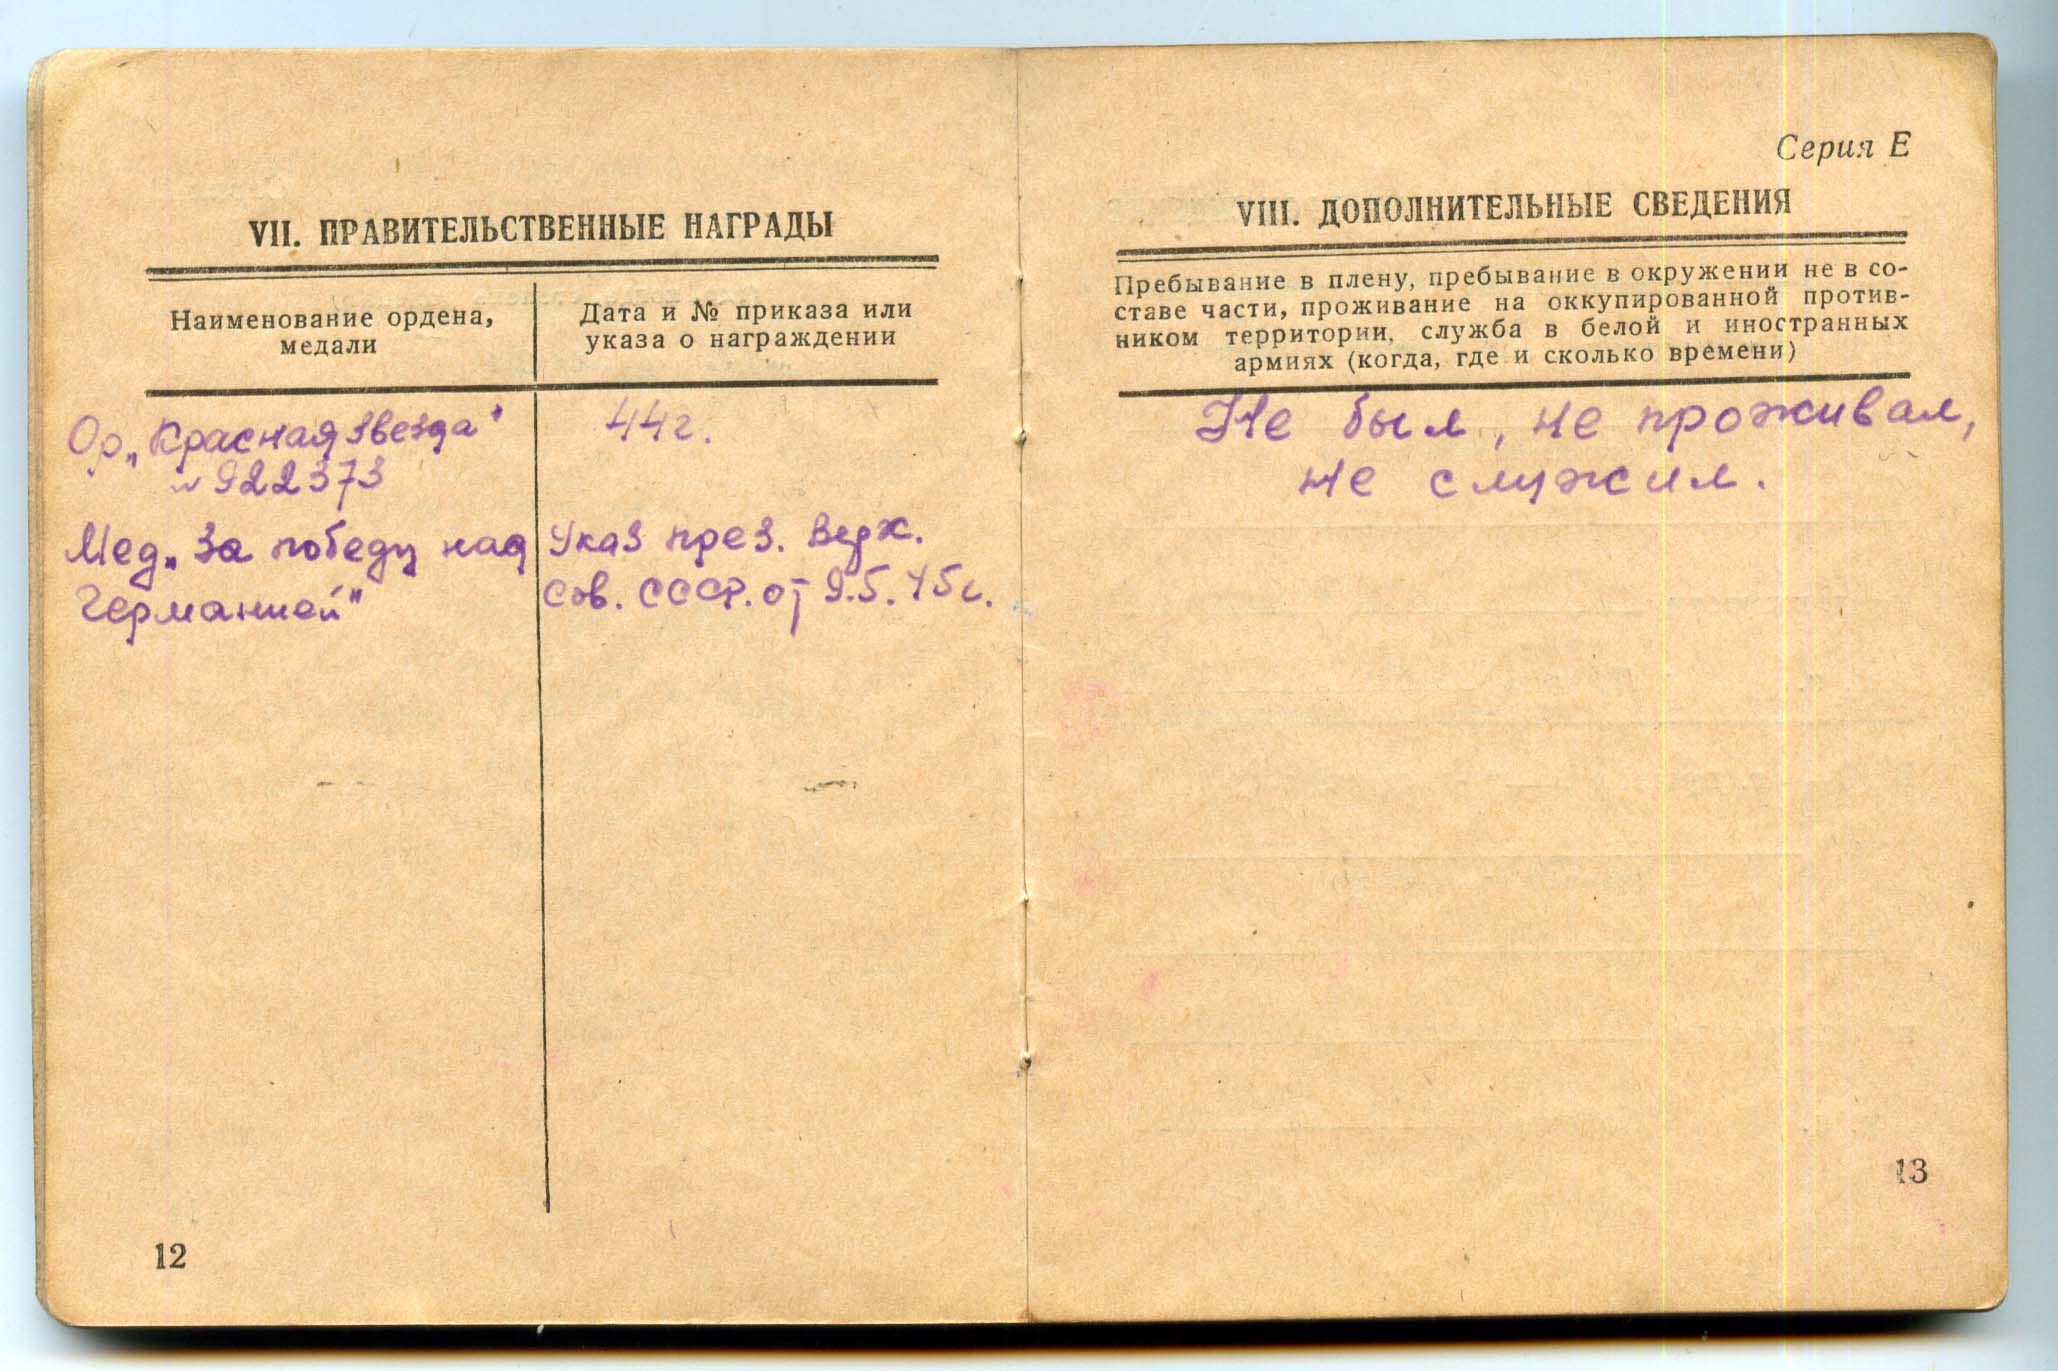 VII. ПРАВИТЕЛЬСТВЕННЫЕ НАГРАДЫ
Наименование ордена,
медали
Дата и № приказа или
указа о награждении
Ор. „Красная звезда"
№ 922373
44г.
Мед. „За победу над
Германией"
Указ през. Верх.
Сов. СССР. от 9.5.45г.
12
Серия Е
VIII. ДОПОЛНИТЕЛЬНЫЕ СВЕДЕНИЯ
Пребывание в плену, пребывание в окружении не в со-
ставе части, проживание на оккупированной против-
ником территории, служба в белой и иностранных
армиях (когда, где и сколько времени)
Не был, не проживал,
не служил.
13